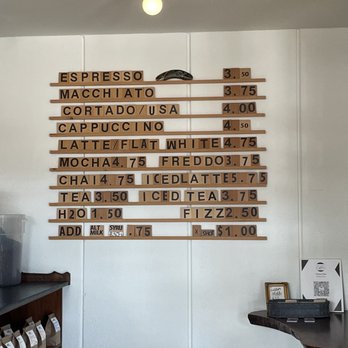 ESPRESSO 3.50
MACCHIATO 3.75
CORTADO/USA 4.00
CAPPUCCINO 4.50
LATTE/FLAT WHITE 4.75
MOCHA 4.75 FREDDO 3.75
CHAI 4.75 ICED LATTE 5.75
TEA 3.50 ICED TEA 3.75
H2O 1.50 FIZZ 2.50
ADD ALT MILK SYRUP .75 SHOT $1.00